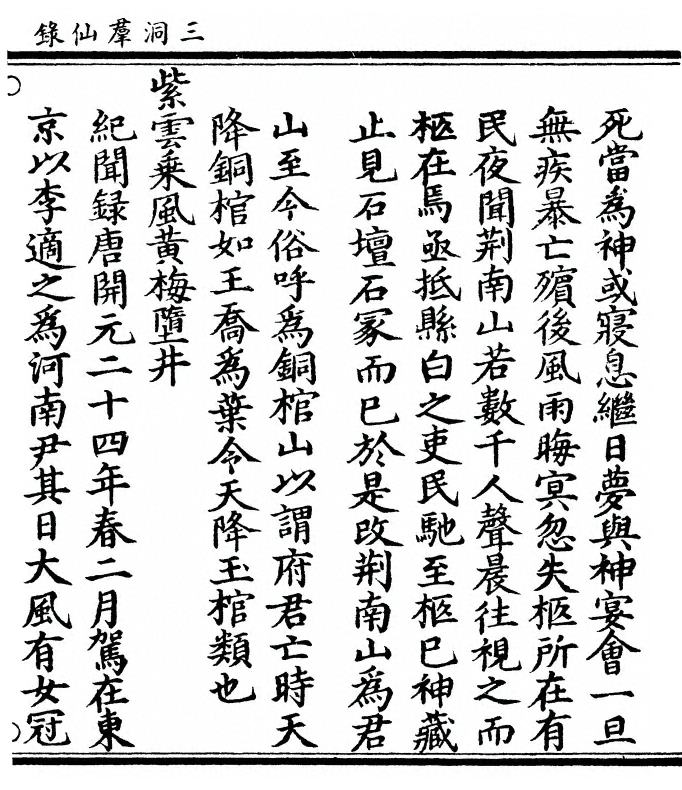 三洞羣仙錄
死當爲神或寢息繼日夢與神宴會一旦
無疾暴亡殯後風雨晦冥忽失柩所在有
民夜聞荆南山若數千人聲晨往視之而
柩在焉亟抵縣白之吏民馳至柩已神藏
止見石壇石冢而已於是改荆南山爲君
山至今俗呼爲銅棺山以謂府君亡時天
降銅棺如王喬爲葉令天降玉棺類也
紫雲乗風黄梅墮井
紀聞録唐開元二十四年春二月駕在東
京以李適之爲河南尹其日大風有女冠